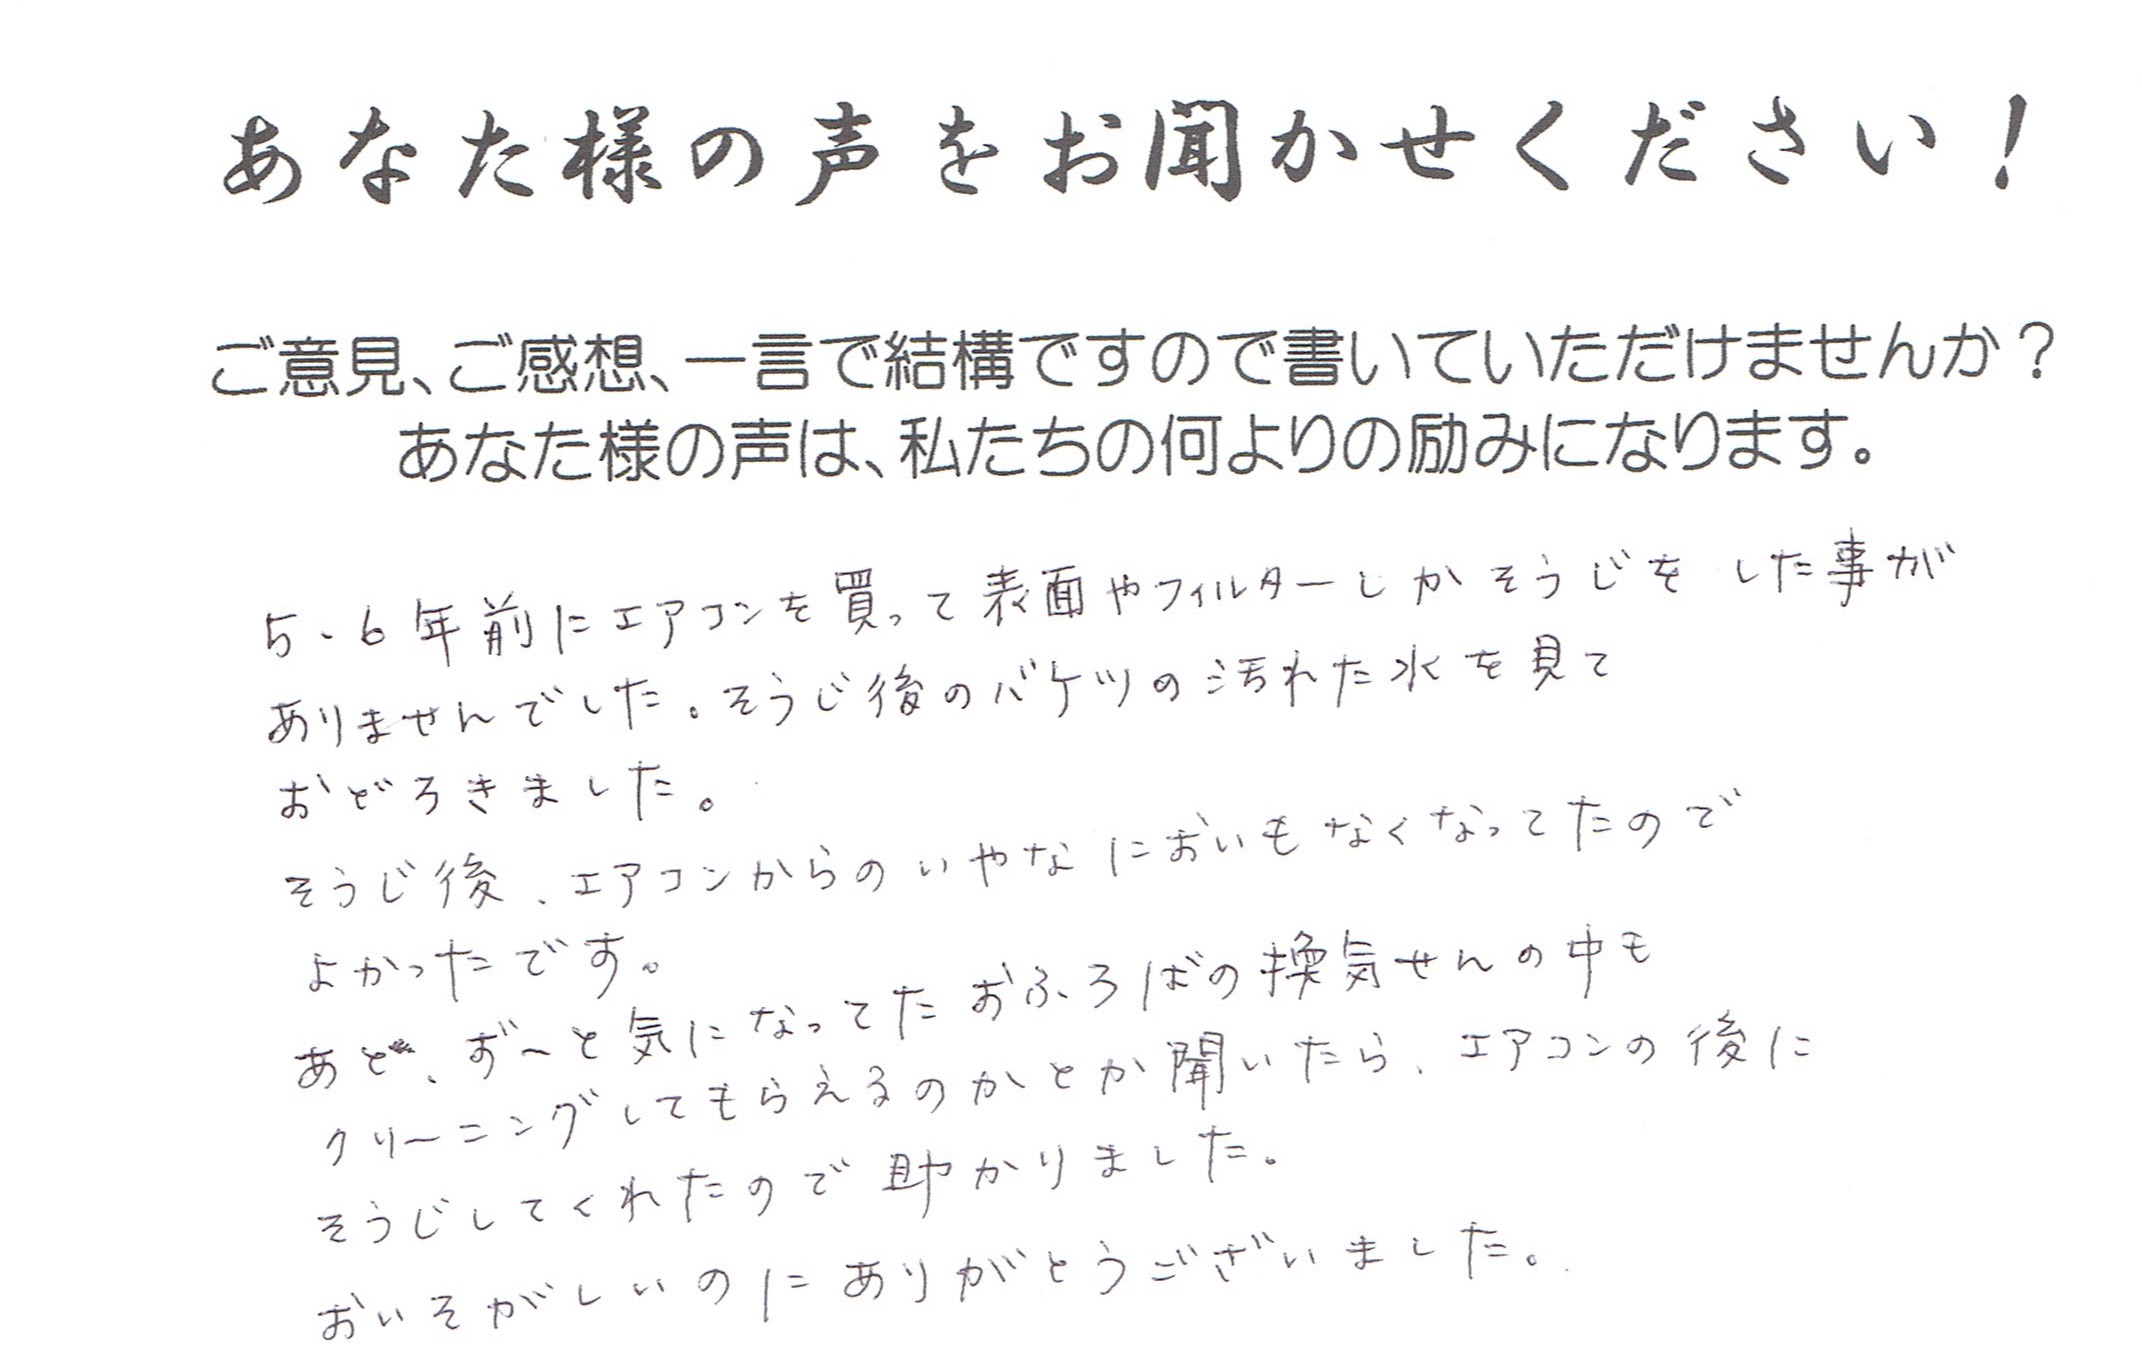 あなた様の声をお聞かせください！
ご意見、ご感想、一言で結構ですので書いていただけませんか？
あなた様の声は、私たちの何よりの励みになります。
5、6年前にエアコンを買って表面やフィルターしかそうじをした事が
ありませんでした。そうじ後のバケツの汚れた水を見て
おどろきました。
そうじ後、エアコンからのいやなにおいもなくなってたので
よかったです。
あと、ず〜と気になってたおふろばの換気せんの中も
クリーニングしてもらえるのかとか聞いたら、エアコンの後に
そうじしてくれたので助かりました。
おいそがしいのにありがとうございました。